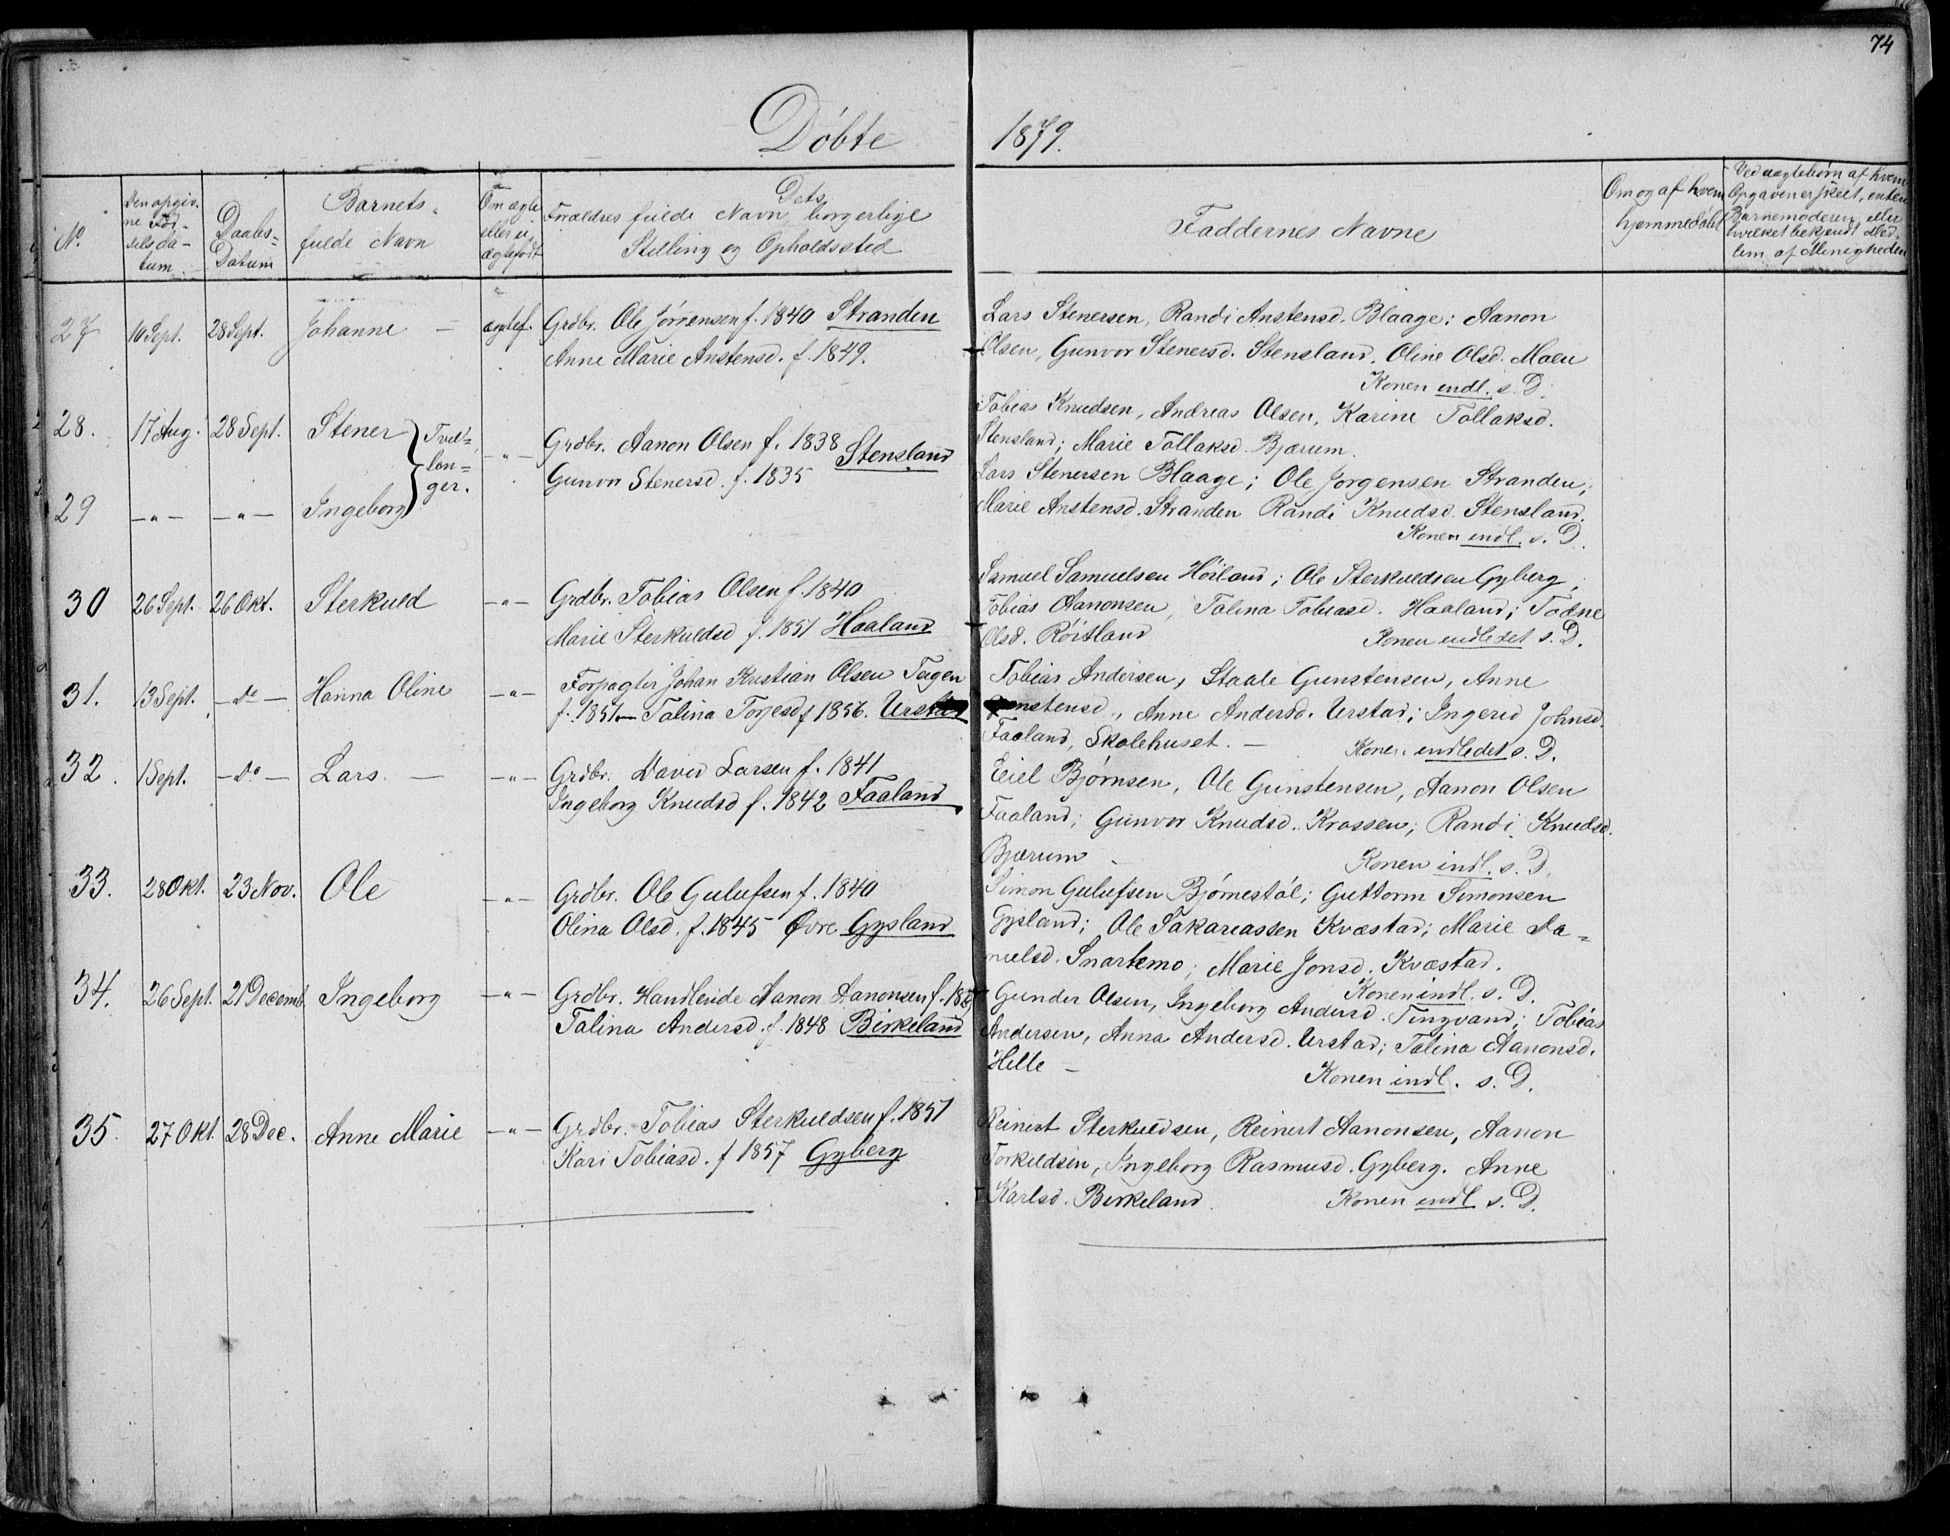 74
Døbte 1879.
No.
Den opgiv-
ne Fød-
selsda-
tum
Daabs-
Datum
Barnets
fulde Navn
Om ægte
eller u-
ægtefødt
Dets
Forældres fulde Navn, borgerlige
Stilling og Opholdssted
Faddernes Navne
Om og af hvem
hjemmedøbt
Ved uægtebørn af hvem
Opgaven er skeet, enten
Barnemoderen eller
hvilket bekjendt Med-
lem af Menigheden
27 10 Sept. 28 Sept. Johanne — ægtef. Grdbr. Ole Jørgensen f. 1840 Stranden
Anne Marie Anstensd. f. 1849.
Lars Stenersen, Randi Anstensd. Blaage; Aanon
Olsen, Gunvor Stenersd. Stensland, Oline Olsd. Moen
Konen indl. s. D.
28. 17 Aug. 28 Sept. Stener } Tvil-
lin-
ger. -"- Grdbr. Aanon Olsen f. 1838
Gunvor Stenersd. f. 1835 Stensland
Tobias Knudsen, Andreas Olsen, Karine Tollaksd.
Stensland; Marie Tollaksd. Bjærum.
29 -"- -"- Ingeborg
Lars Stenersen Blaage; Ole Jørgensen Stranden;
Marie Anstensd. Stranden Randi Knudsd. Stensland.
Konen indl. s. D.
30 26 Sept. 26 Okt. Sterkuld -"- Grdbr. Tobias Olsen f. 1840
Marie Sterkuldsd f. 1851 Haaland
Samuel Samuelsen Høiland; Ole Sterkuldsen Gyberg;
Tobias Aanonsen, Talina Tobiasd. Haaland; Todne
Olsd. Røitland Konen indledet s. D.
31. 13 Sept. -do- Hanna Oline -"- Forpagter Johan Kristian Olsen Tagen
f. 1851 — Talina Torjesd f 1856. Urstad
Tobias Andersen, Staale Gunstensen, Anne
Gunstensd., Anne Andersd. Urstad; Ingerid Johnsd.
Faaland, Skolehuset. — Konen indledet s. D.
32. 1 Sept. -do- Lars. — -"- Grdbr. David Larsen f. 1841
Ingeborg Knudsd f. 1842 Faaland
Eiel Bjørnsen, Ole Gunstensen, Aanon Olsen
Faaland; Gunvor Knudsd. Krossen; Randi Knudsd.
Bjærum — Konen indl. s. D.
33. 28 Okt. 23 Nov. Ole -"- Grdbr. Ole Gulufsen f. 1840
Olina Olsd. f. 1845 Øvre Gysland
Simon Gulufsen Bjørnestøl; Guttorm Simonsen
Gysland; Ole Sakariassen Kvæstad; Marie Da-
nielsd. Snartemo; Marie Jonsd. Kvæstad.
Konen indl. s. D.
34. 26 Sept. 21 Decemb. Ingeborg -"- Grdbr. Handlende Aanon Aanonsen f.
Talina Andersd. f. 1848 Birkeland
Gunder Olsen, Ingeborg Andersd. Tingvand; Tobias
Andersen, Anna Andersd. Urstad; Talina Aanonsd.
Helle — Konen indl. s. D.
35. 27 Okt. 28 Dec. Anne Marie -"- Grdbr. Tobias Sterkuldsen f. 1851
Kari Tobiasd. f 1857 Gyberg
Reinert Sterkuldsen, Reinert Aanonsen, Aanon
Torkildsen, Ingeborg Rasmusd. Gyberg. Anne
Karlsd. Birkeland. Konen indl. s. D.